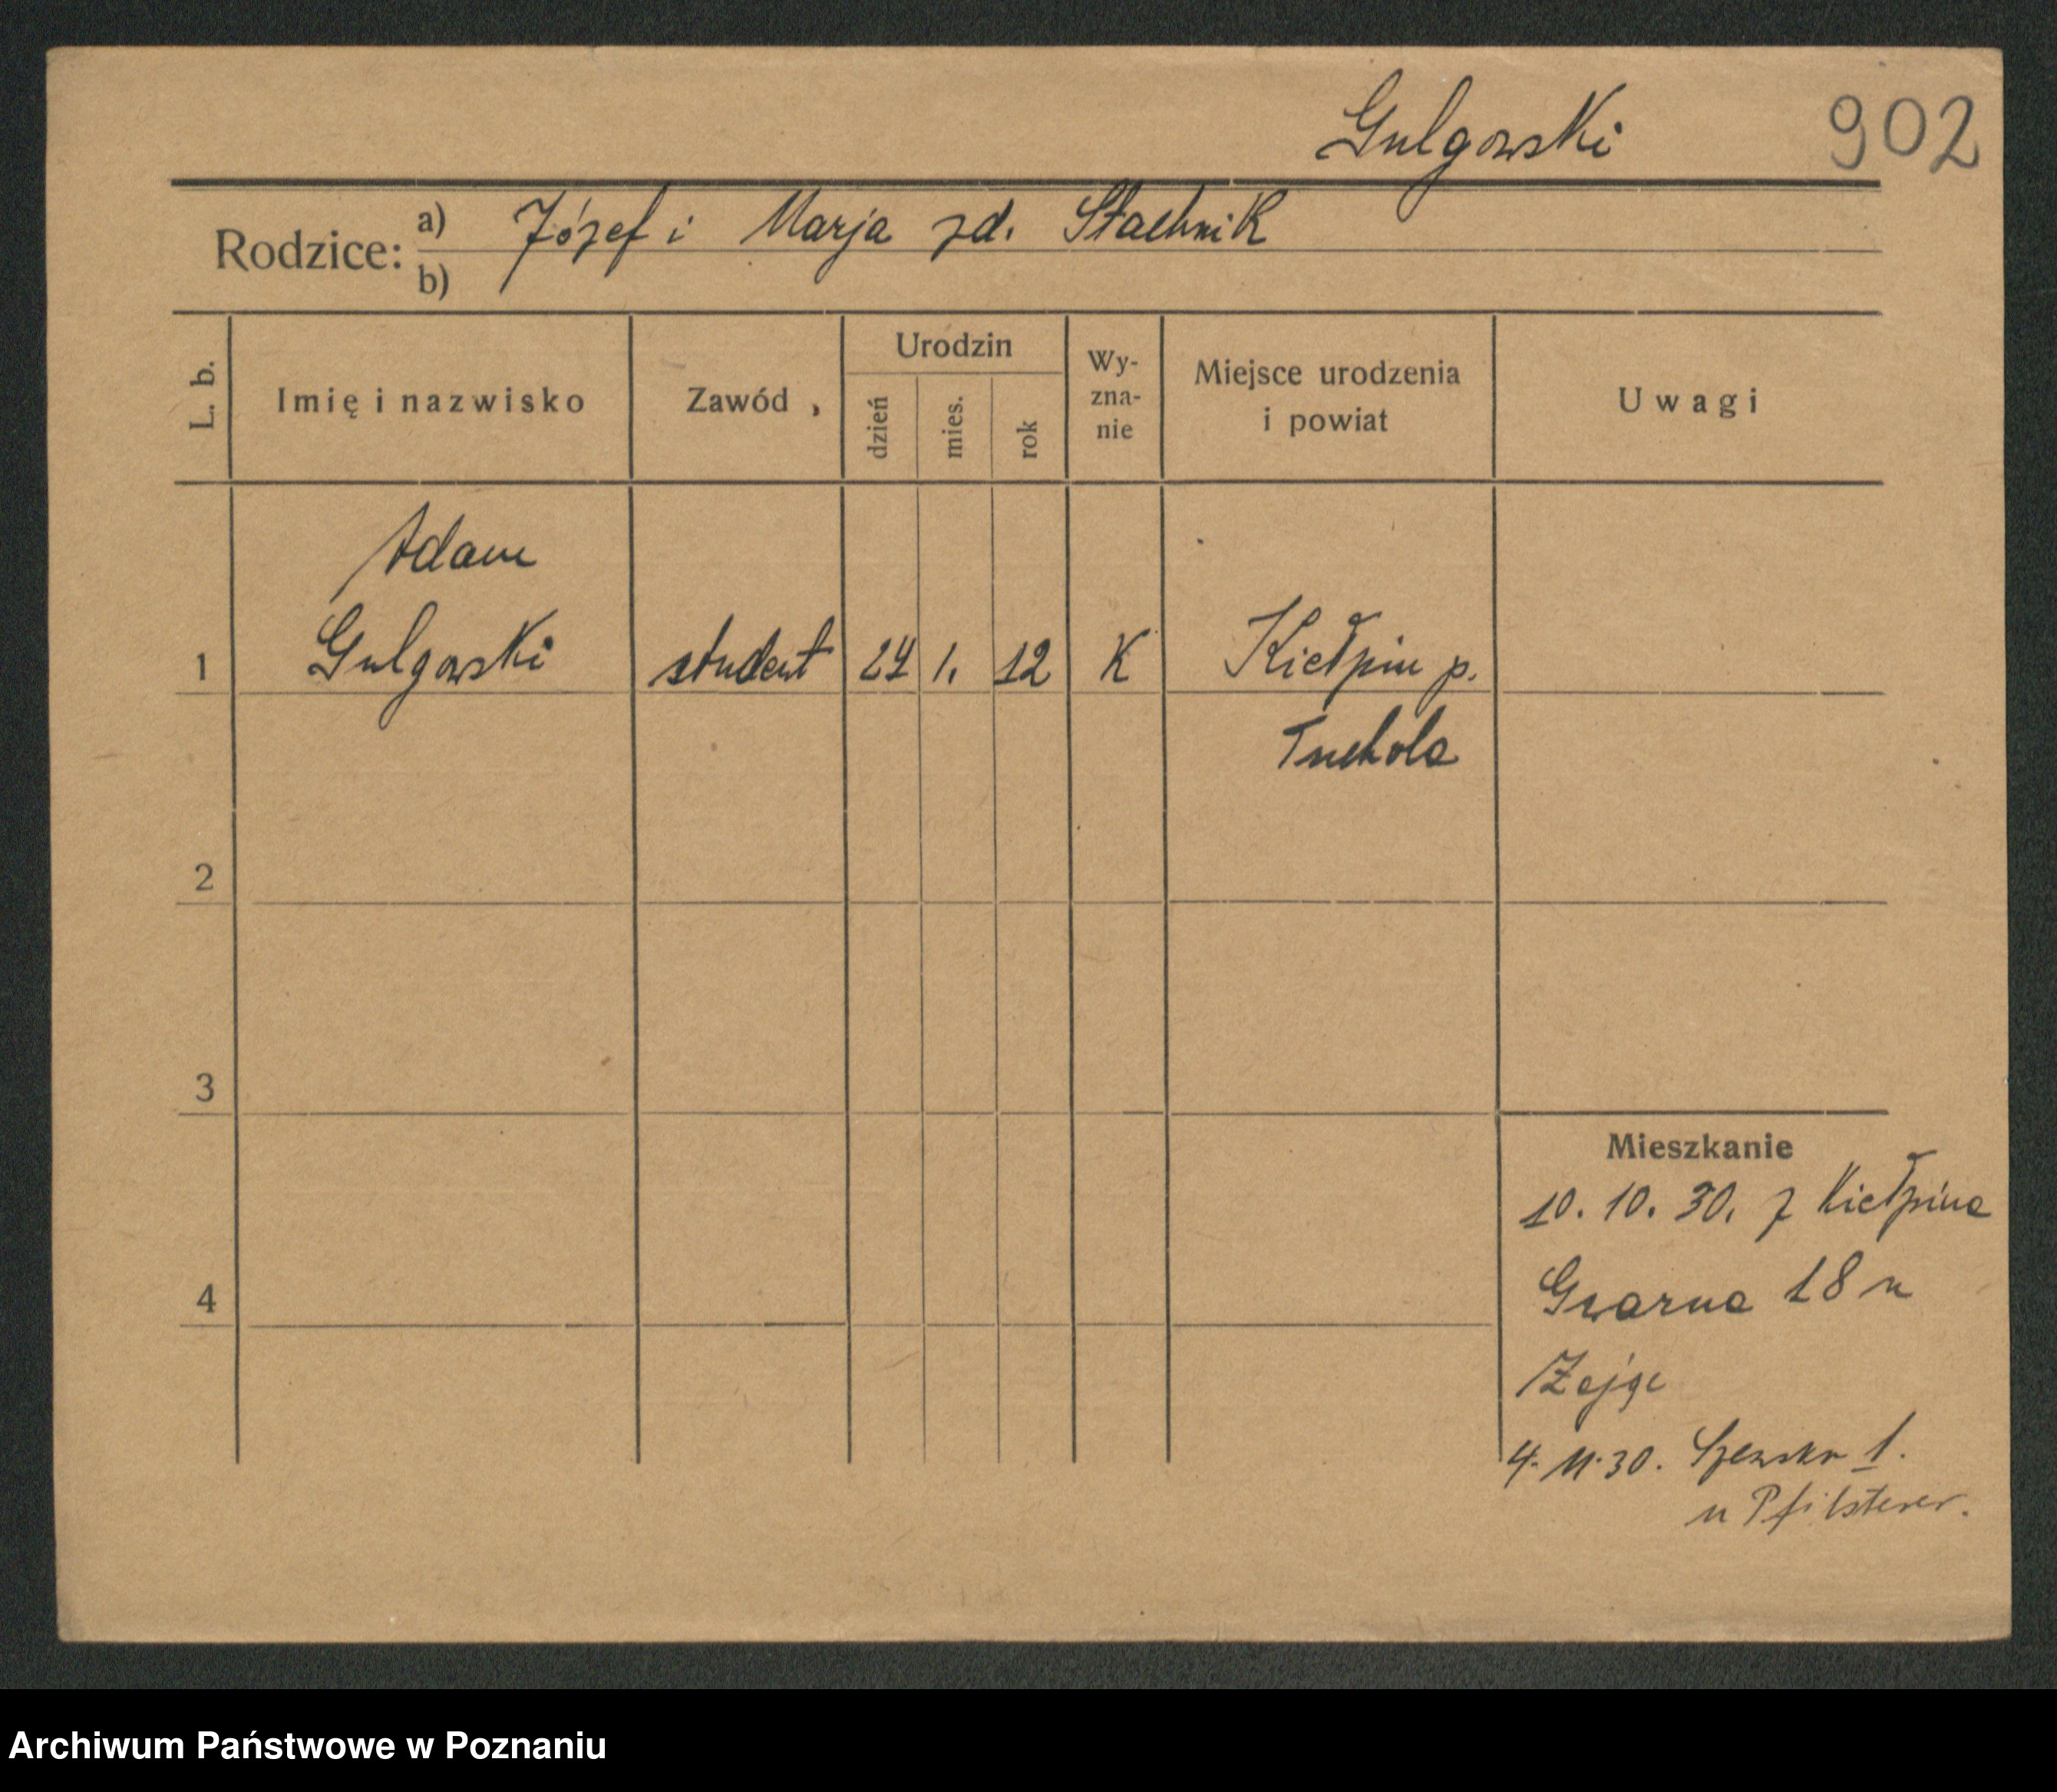 Gulgowski 902
Rodzice: a) Józef i Marja zd. Stachnik
b)
L. b. Imię i nazwisko Zawód Urodzin dzień mies. rok Wy-zna-nie Miejsce urodzenia i powiat Uwagi
Adam
1 Gulgowski student 24 1. 12 K Kiełpin p.
Tuchola
2
3
Mieszkanie
10. 10. 30. z Kiełpina
4 Gwarna 18 u
4. 11. 30. Szewska 1.
u Pfilsterer.
Archiwum Państwowe w Poznaniu